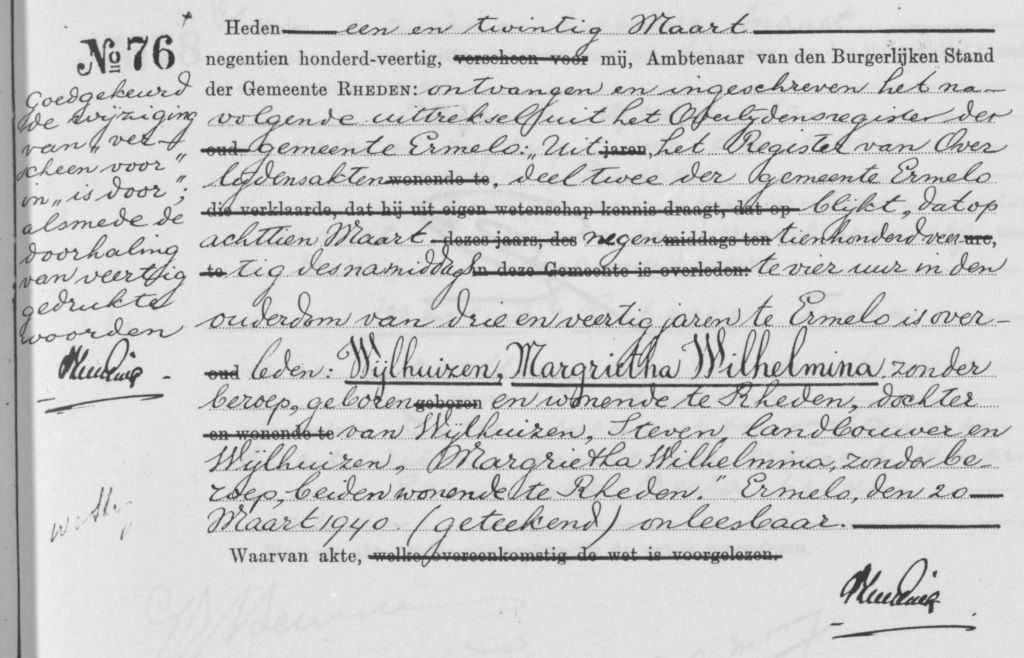 Heden een en twintig Maart
No 76
negentien honderd-veertig, verscheen voor mij, Ambtenaar van den Burgerlijken Stand
der Gemeente RHEDEN: ontvangen en ingeschreven het na-
volgende uittreksel uit het Overlijdensregister der
oud gemeente Ermelo: „Uit jaren, het Register van Over
lijdensakten wonende te, deel twee der gemeente Ermelo
die verklaarde, dat hij uit eigen wetenschap kennis draagt, dat op blijkt, dat op
achttien Maart dezes jaars, des negen middags ten tienhonderd veer ure,
te tig des namiddags in deze Gemeente is overleden: te vier uur in den
ouderdom van drie en veertig jaren te Ermelo is over-
oud leden: Wijlhuizen, Margrietha Wilhelmina, zonder
beroep, geboren geboren en wonende te Rheden, dochter
en wonende te van Wijlhuizen, Steven, landbouwer en
Wijlhuizen, Margrietha Wilhelmina, zonder be-
roep, beiden wonende te Rheden." Ermelo, den 20
Maart 1940 (geteekend) onleesbaar.
Waarvan akte, welke overeenkomstig de wet is voorgelezen.
Goedgekeurd
de wijziging
van „ver-
scheen voor"
in „is door";
alsmede de
doorhaling
van veertig
gedrukte
woorden